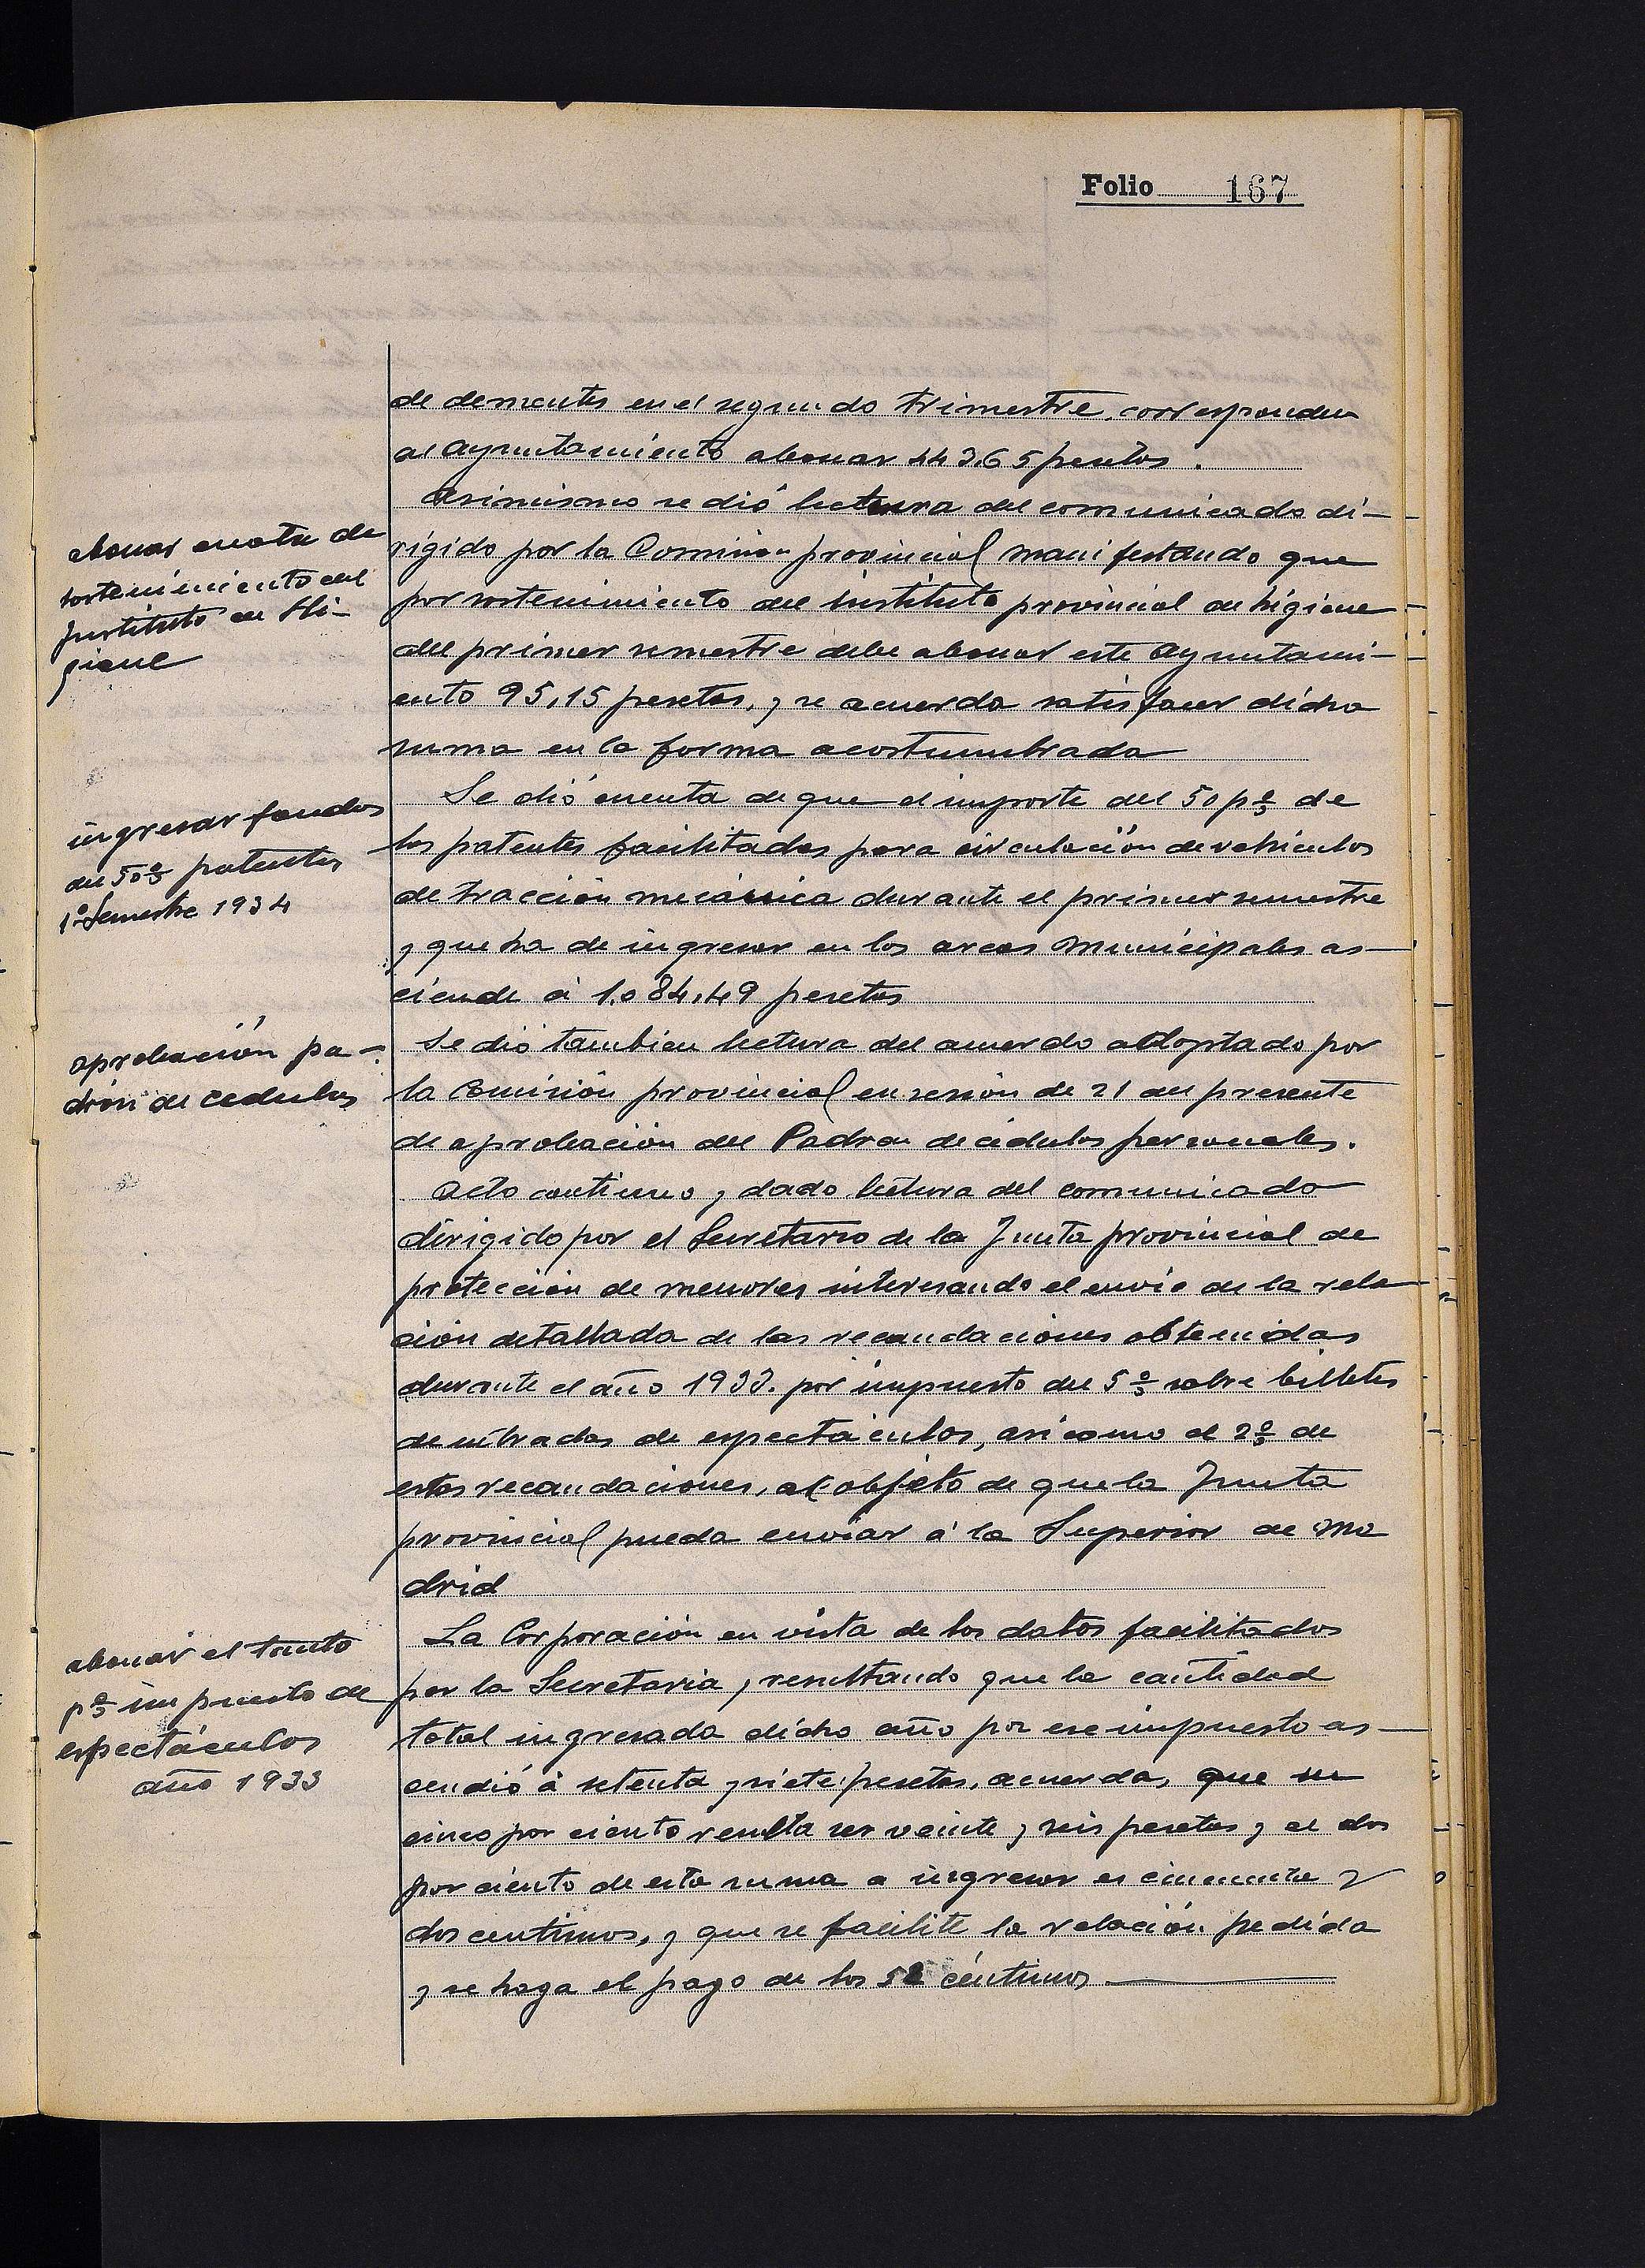 Folio 167
de dementes en el segundo trimestre, corresponden
al Ayuntamiento abonar 443,65 pesetas.
Asimismo se dió lectura del comunicado di-
rigido por la Comisión provincial manifestando que
por sostenimiento del instituto provincial de higiene
del primer semestre debe abonar este Ayuntami-
ento 95,15 pesetas, y se acuerda satisfacer dicha
suma en la forma acostumbrada
Se dió cuenta de que el importe del 50 p% de
las patentes facilitadas para circulación de vehiculos
de tracción mecánica durante el primer semestre
y que ha de ingresar en las arcas municipales as-
ciende á 1.084,49 pesetas
Se dió tambien lectura del acuerdo adoptado por
la Comisión provincial en sesión de 21 del presente
de aprobación del Padron de cédulas personales.
Acto continuo y dado lectura del comunicado
dirigido por el Secretario de la Junta provincial de
protección de menores interesando el envio de la rela
ción detallada de las recaudaciones obtenidas
durante el año 1933. por impuesto del 5% sobre billetes
de entradas de espectáculos, asi como el 2% de
estas recaudaciones, al objeto de que la Junta
provincial pueda enviar á la Superior de Ma
drid
La Corporación en vista de los datos facilitados
por la Secretaria, resultando que la cantidad
total ingresada dicho año por ese impuesto as-
cendió á setenta y siete pesetas, acuerda, que su
cinco por ciento resulta ser veinte y seis pesetas y el dos
por ciento de esta suma a ingresar es cincuenta y
dos centimos, y que se facilite la relación pedida
y se haga el pago de los 52 céntimos
abonar cuota de
sostenimiento del
Instituto de Hi-
giene
ingresar fondos
del 50% patentes
1º Semestre 1934
aprobación pa-
drón de cedulas
abonar el tanto
p% impuesto de
espectáculos
año 1933